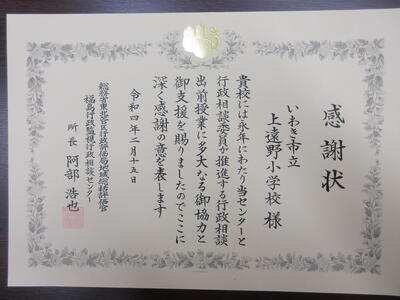 感謝状
いわき市立
上遠野小学校 様
貴校には永年にわたり当センターと
行政相談委員が推進する行政相談
出前授業に多大なる御協力と
御支援を賜りましたのでここに
深く感謝の意を表します
令和四年二月十五日
総務省東北管区行政評価局地域総括評価官
福島行政監視行政相談センター
所長 阿部浩也